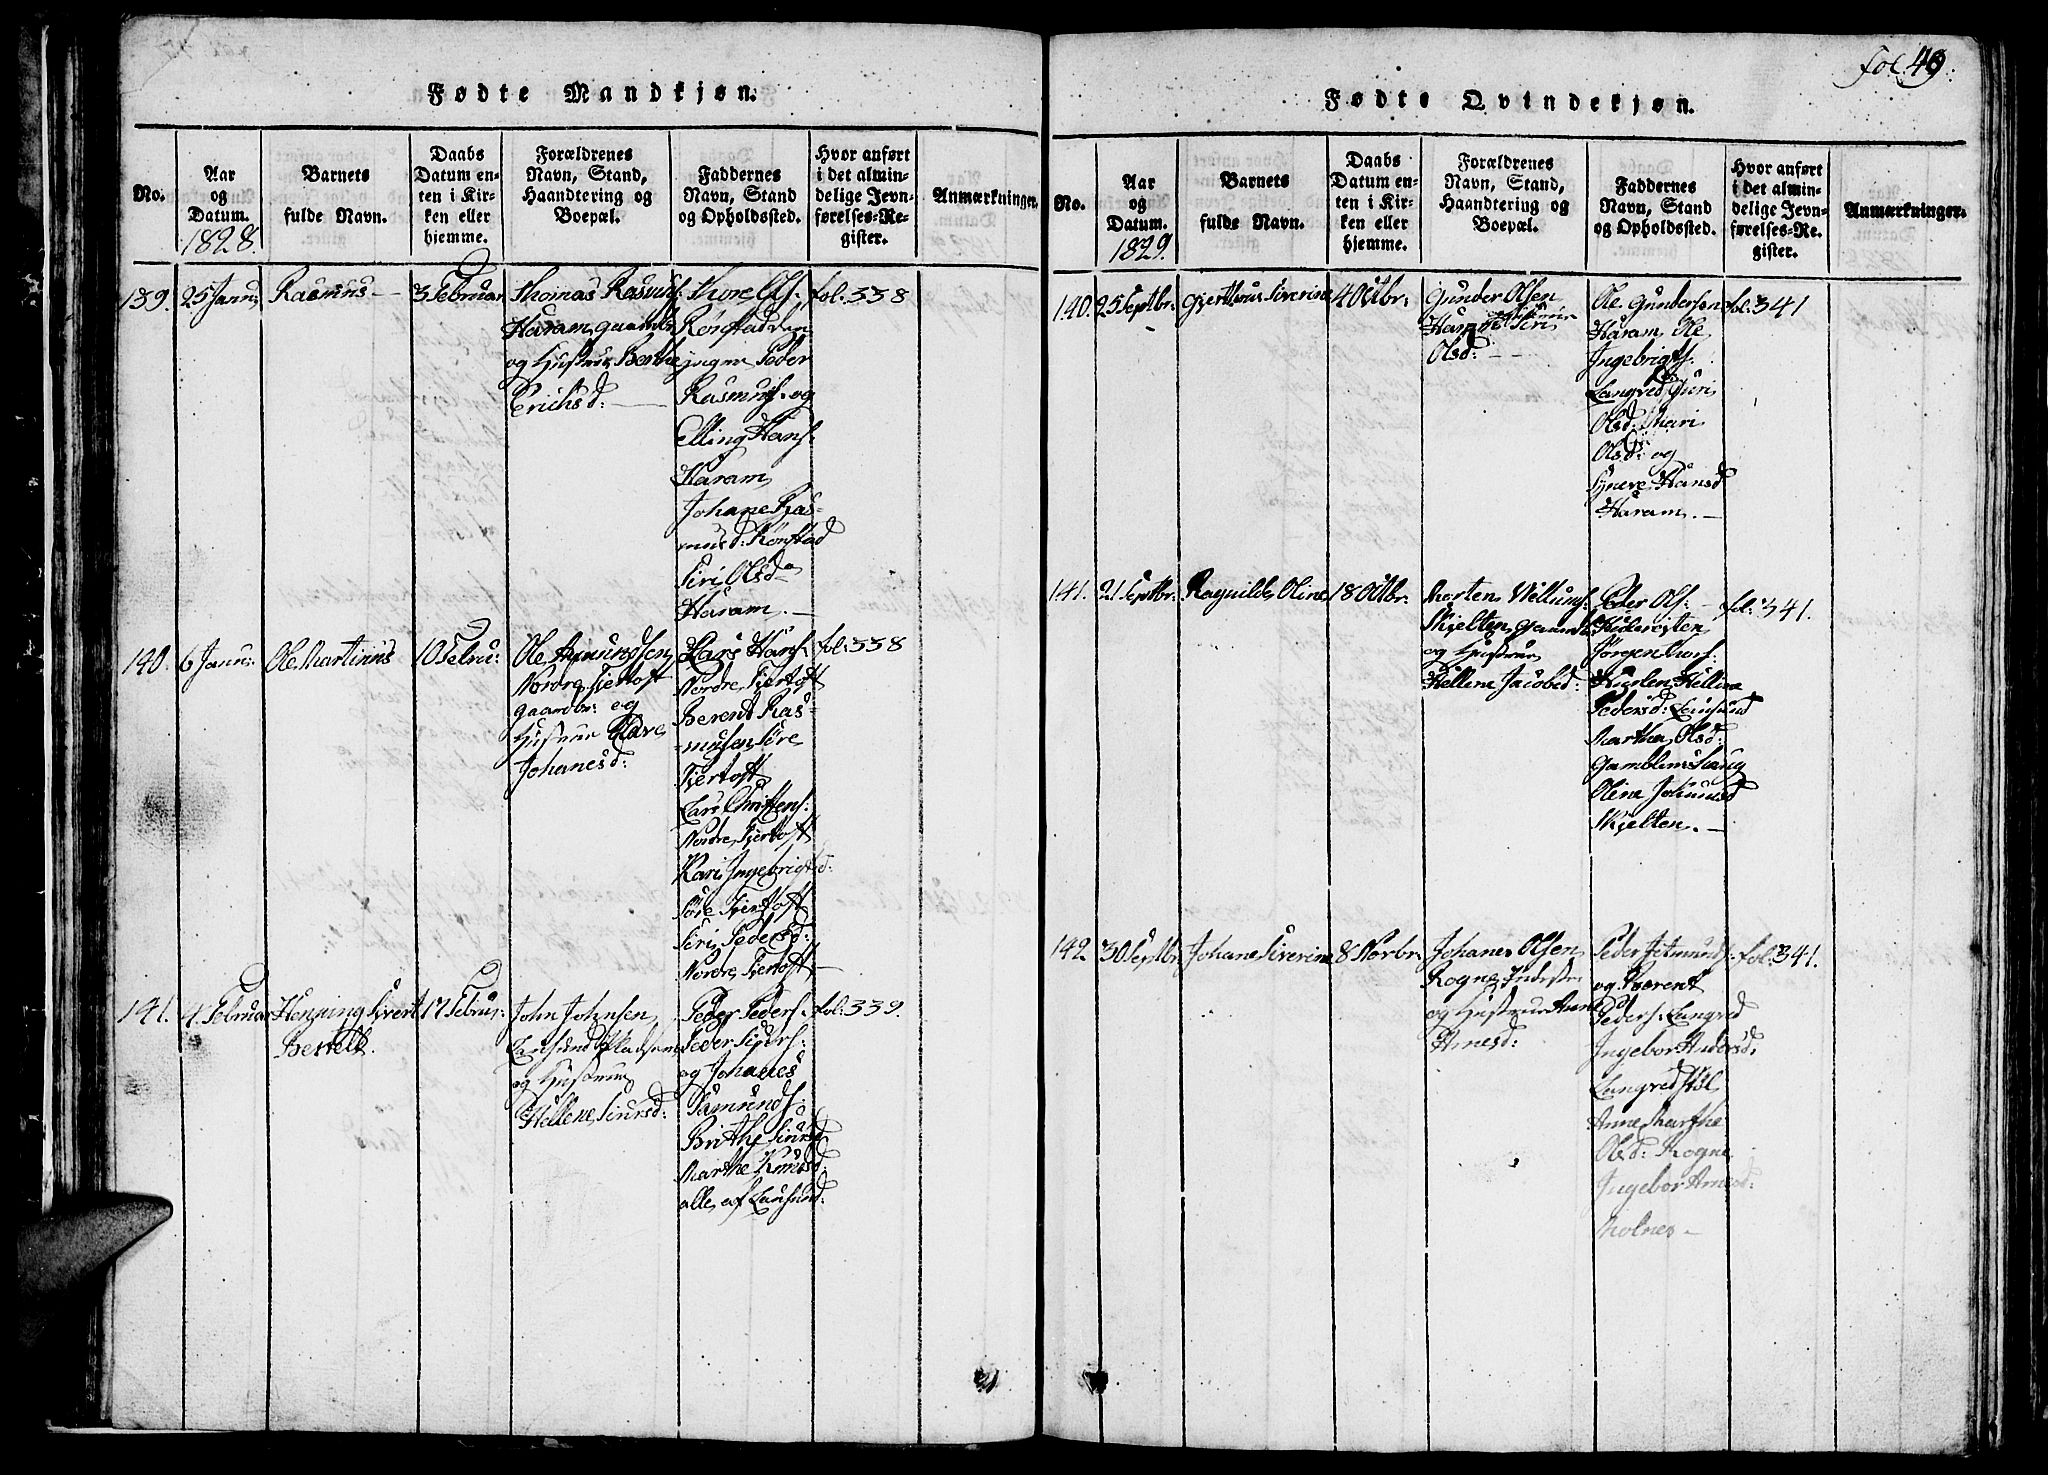 Fødte Mandkjøn.
No.
Aar
og
Datum.
1828.
Barnets
fulde Navn.
Daabs
Datum en-
ten i Kir-
ken eller
hjemme.
Forældrenes
Navn, Stand,
Haandtering og
Boepæl.
Faddernes
Navn, Stand
og Opholdssted.
Hvor anført
i det almin-
delige Jevn-
førelses-Re-
gister.
Anmærkninger.
139.
25 Janu:
Rasmus
3 Februar
Thomas Rasmus:
Haram gaardb:
og Hustrue Berthe
Erichsd:
Thore Ols:
Rønstad den
yngre Peder
Rasmus: og
Elling Hans:
Haram
Johane Ras=
musd: Rønstad
Siri Olsd
Haram. —
fol: 338
140.
6 Janu:
Ole Martinus
10 Febru:
Ole Amundsen
Nordre Fiertoft
gaardbr: og
Hustrue
Johanesd:
Lars Hans:
Nordre Fiertoft
Berent Ras=
musen Søre
Fiertoft
Lars Christens:
Nordre Fiertoft
Kari Ingebrigtsd:
Søre Fiertoft
Siri Pedersd:
Nordre Fiertoft —
fol: 338
141.
4 Februar
Henning Sivert
Bertell.
17 Februar:
John Johnsen
Lausund
og Hustrue
Hellene Siursd:
Peder Peders:
Peder Siurs:
og Johanes
Samunds:
Brithe Siursd
Marthe Knudsd:
alle af Lausund:
fol: 339.
Fol: 49.
Fødte Qvindekjøn.
No.
Aar
og
Datum.
1829.
Barnets
fulde Navn.
Daabs
Datum en-
ten i Kir-
ken eller
hjemme.
Forældrenes
Navn, Stand,
Haandtering og
Boepæl.
Faddernes
Navn, Stand
og Opholdssted.
Hvor anført
i det almin-
delige Jevn-
førelses-Re-
gister.
Anmærkninger.
140.
25 Septbr:
Gjertine Siverine
4 Octbr:
Gunder Olsen
Haram Siri
Olsd: —
Ole Gundersen
Haram Ole
Ingebrigts:
Langved Guri
Olsd: Mari
Olsd: og
Syneve Hansd
Haram. —
fol: 341
141.
21 Septbr:
Ragnilde Oline
18 Octbr:
Morten Villums:
Skjelten gaardb:
og Hustrue
Hellene Jacobsd:
Peder Ols:
Jørgen Mors:
Pedersd: Lausund
Marthe Olsd:
Oline Johansd
Skjelten. —
fol: 341.
142
30 Septbr:
Johane Siverine
8 Novbr:
Johanes Olsen
Rogne Inderst
og Hustrue Anne
Arnesd:
Peder Jetmunds:
og Berent
Peders: Langved
Ingebor Andersd:
Langved
Anne Marthe
Olsd: Rogne
Ingebor Arnesd:
Molnes —
fol: 341.